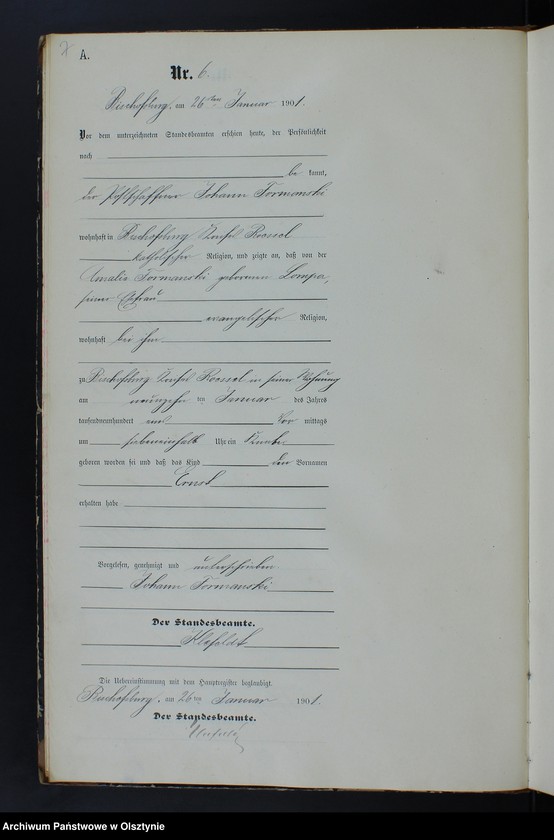 A.
Nr. 6.
Bischofsburg, am 26ten Januar 1901.
Vor dem unterzeichneten Standesbeamten erschien heute, der Persönlichkeit
nach
be kannt,
der Postschaffner Johann Tormanski
wohnhaft in Bischofsburg Kreises Roessel
katholischer Religion, und zeigte an, daß von der
Amalie Tormanski geborenen Lompa,
seiner Ehefrau
evangelischer Religion,
wohnhaft bei ihm
zu Bischofsburg Kreises Roessel in seiner Wohnung
am neunzehn ten Januar des Jahres
tausendneunhundert eins Vor mittags
um siebeneinhalb Uhr ein Knabe
geboren worden sei und daß das Kind den Vornamen
Ernst
erhalten habe
Vorgelesen, genehmigt und unterschrieben
Johann Tormanski
Der Standesbeamte.
Die Uebereinstimmung mit dem Hauptregister beglaubigt.
Bischofsburg, am 26ten Januar 1901.
Der Standesbeamte.
Archiwum Państwowe w Olsztynie